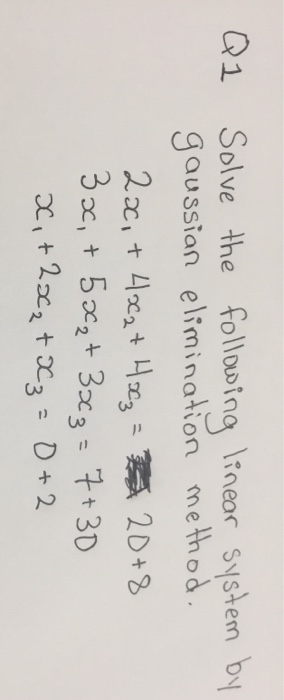 Q1 Solve the following linear system by
gaussian elimination method.
2x₁ + 4x₂ + 4x₃ = 2D+8
3x₁ + 5x₂ + 3x₃ = 7+3D
x₁ + 2x₂ + x₃ = D+2